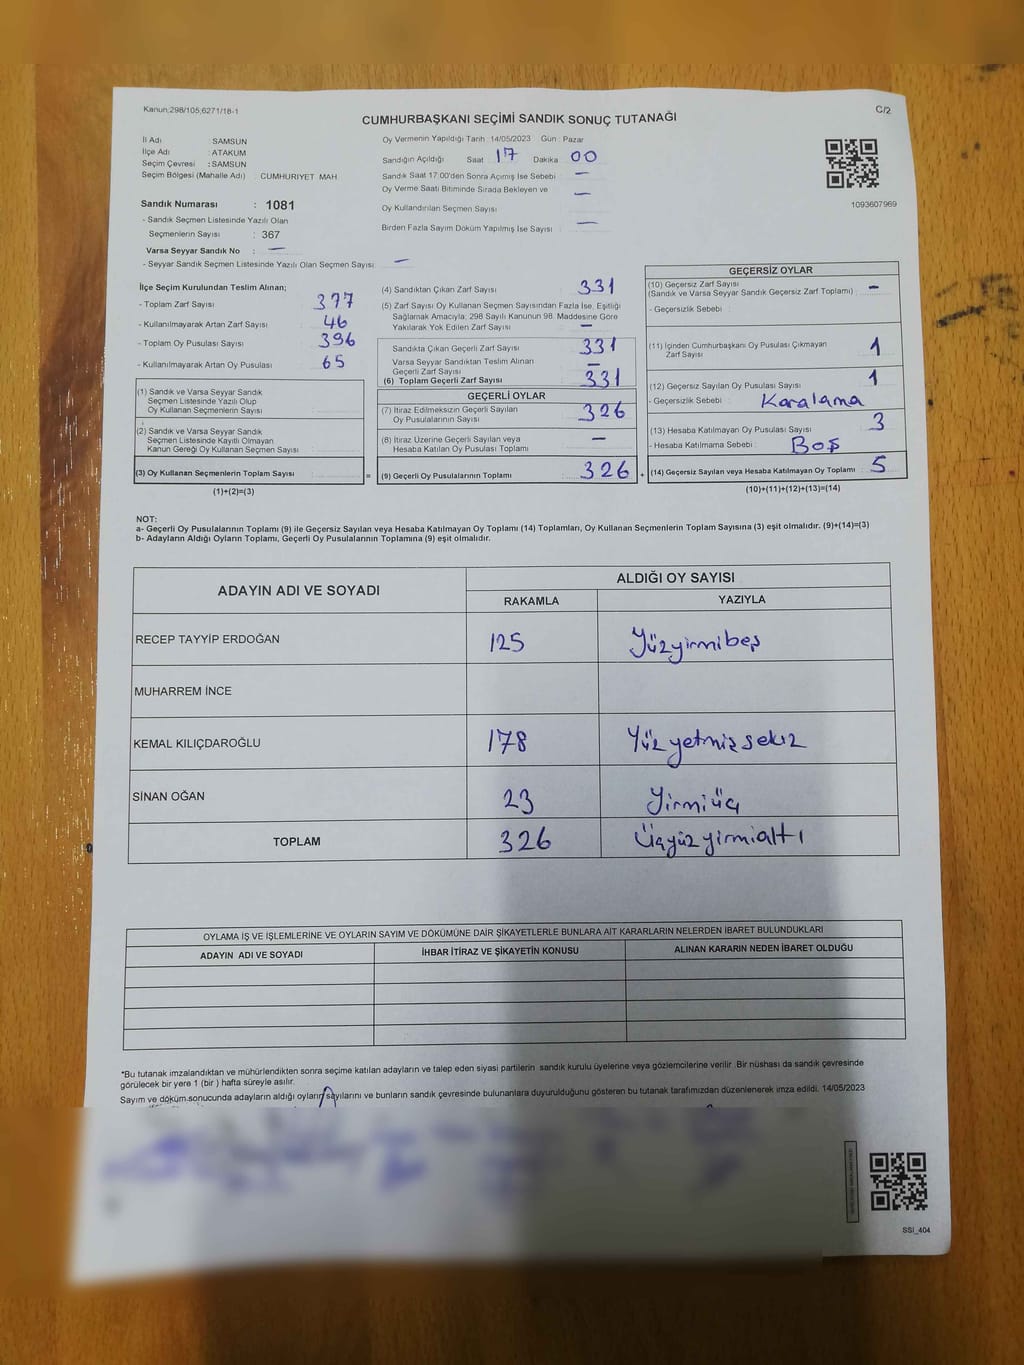 Kanun;298/105;6271/18-1
C/2
CUMHURBAŞKANI SEÇİMİ SANDIK SONUÇ TUTANAĞI
İli Adı SAMSUN
İlçe Adı : ATAKUM
Seçim Çevresi : SAMSUN
Seçim Bölgesi (Mahalle Adı) : CUMHURIYET MAH
Sandık Numarası : 1081
- Sandık Seçmen Listesinde Yazılı Olan
Seçmenlerin Sayısı : 367
Varsa Seyyar Sandık No : —
- Seyyar Sandık Seçmen Listesinde Yazılı Olan Seçmen Sayısı: —
Oy Vermenin Yapıldığı Tarih :14/05/2023 Gün : Pazar
Sandığın Açıldığı Saat 17 Dakika 00
Sandık Saat 17:00'den Sonra Açımış İse Sebebi : —
Oy Verme Saati Bitiminde Sırada Bekleyen ve —
Oy Kullandırılan Seçmen Sayısı
Birden Fazla Sayım Döküm Yapılmış İse Sayısı : —
1093607969
İlçe Seçim Kurulundan Teslim Alınan;
- Toplam Zarf Sayısı 377
- Kullanılmayarak Artan Zarf Sayısı 46
- Toplam Oy Pusulası Sayısı 396
- Kullanılmayarak Artan Oy Pusulası 65
(1) Sandık ve Varsa Seyyar Sandık
Seçmen Listesinde Yazılı Olup
Oy Kullanan Seçmenlerin Sayısı
(2) Sandık ve Varsa Seyyar Sandık
Seçmen Listesinde Kayıtlı Olmayan
Kanun Gereği Oy Kullanan Seçmen Sayısı
(3) Oy Kullanan Seçmenlerin Toplam Sayısı =
(1)+(2)=(3)
(4) Sandıktan Çıkan Zarf Sayısı 331
(5) Zarf Sayısı Oy Kullanan Seçmen Sayısından Fazla İse, Eşitliği
Sağlamak Amacıyla; 298 Sayılı Kanunun 98. Maddesine Göre
Yakılarak Yok Edilen Zarf Sayısı —
Sandıkta Çıkan Geçerli Zarf Sayısı 331
Varsa Seyyar Sandıktan Teslim Alınan
Geçerli Zarf Sayısı —
(6) Toplam Geçerli Zarf Sayısı 331
GEÇERLİ OYLAR
(7) İtiraz Edilmeksizin Geçerli Sayılan
Oy Pusulalarının Sayısı 326
(8) İtiraz Üzerine Geçerli Sayılan veya
Hesaba Katılan Oy Pusulası Toplamı —
(9) Geçerli Oy Pusulalarının Toplamı 326 +
GEÇERSİZ OYLAR
(10) Geçersiz Zarf Sayısı
(Sandık ve Varsa Seyyar Sandık Geçersiz Zarf Toplamı) : —
- Geçersizlik Sebebi :
(11) İçinden Cumhurbaşkanı Oy Pusulası Çıkmayan
Zarf Sayısı 1
(12) Geçersiz Sayılan Oy Pusulası Sayısı 1
- Geçersizlik Sebebi : Karalama
(13) Hesaba Katılmayan Oy Pusulası Sayısı 3
- Hesaba Katılmama Sebebi : Boş
(14) Geçersiz Sayılan veya Hesaba Katılmayan Oy Toplamı 5
(10)+(11)+(12)+(13)=(14)
NOT:
a- Geçerli Oy Pusulalarının Toplamı (9) ile Geçersiz Sayılan veya Hesaba Katılmayan Oy Toplamı (14) Toplamları, Oy Kullanan Seçmenlerin Toplam Sayısına (3) eşit olmalıdır. (9)+(14)=(3)
b- Adayların Aldığı Oyların Toplamı, Geçerli Oy Pusulalarının Toplamına (9) eşit olmalıdır.
ADAYIN ADI VE SOYADI
ALDIĞI OY SAYISI
RAKAMLA YAZIYLA
RECEP TAYYİP ERDOĞAN 125 Yüzyirmibeş
MUHARREM İNCE
KEMAL KILIÇDAROĞLU 178 Yüz yetmiş sekiz
SİNAN OĞAN 23 Yirmiüç
TOPLAM 326 Üçyüz yirmialtı
OYLAMA İŞ VE İŞLEMLERİNE VE OYLARIN SAYIM VE DÖKÜMÜNE DAİR ŞİKAYETLERLE BUNLARA AİT KARARLARIN NELERDEN İBARET BULUNDUKLARI
ADAYIN ADI VE SOYADI İHBAR İTİRAZ VE ŞİKAYETİN KONUSU ALINAN KARARIN NEDEN İBARET OLDUĞU
*Bu tutanak imzalandıktan ve mühürlendikten sonra seçime katılan adayların ve talep eden siyasi partilerin sandık kurulu üyelerine veya gözlemcilerine verilir .Bir nüshası da sandık çevresinde
görülecek bir yere 1 (bir ) hafta süreyle asılır.
Sayım ve döküm sonucunda adayların aldığı oyların sayılarını ve bunların sandık çevresinde bulunanlara duyurulduğunu gösteren bu tutanak tarafımızdan düzenlenerek imza edildi. 14/05/2023
SSI_404